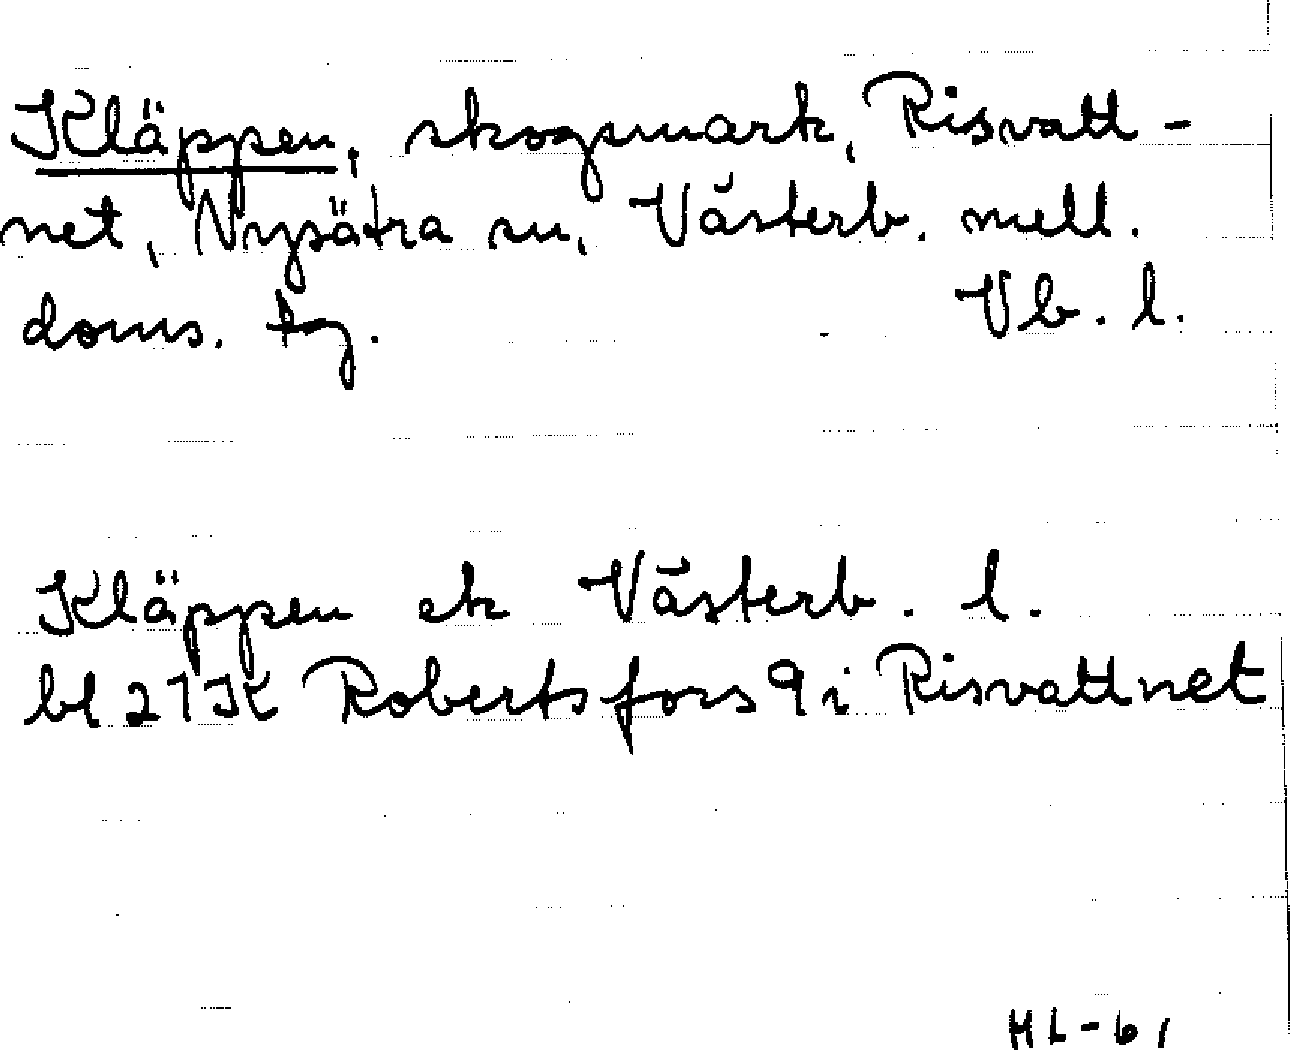 Kläppen, skogsmark, Risvatt-
net, Nysätra sn, Västerb. mell.
doms. tg. Vb. l.
Kläppen ek Västerb. l.
bl 21K Robertsfors 9i Risvattnet
HL-61